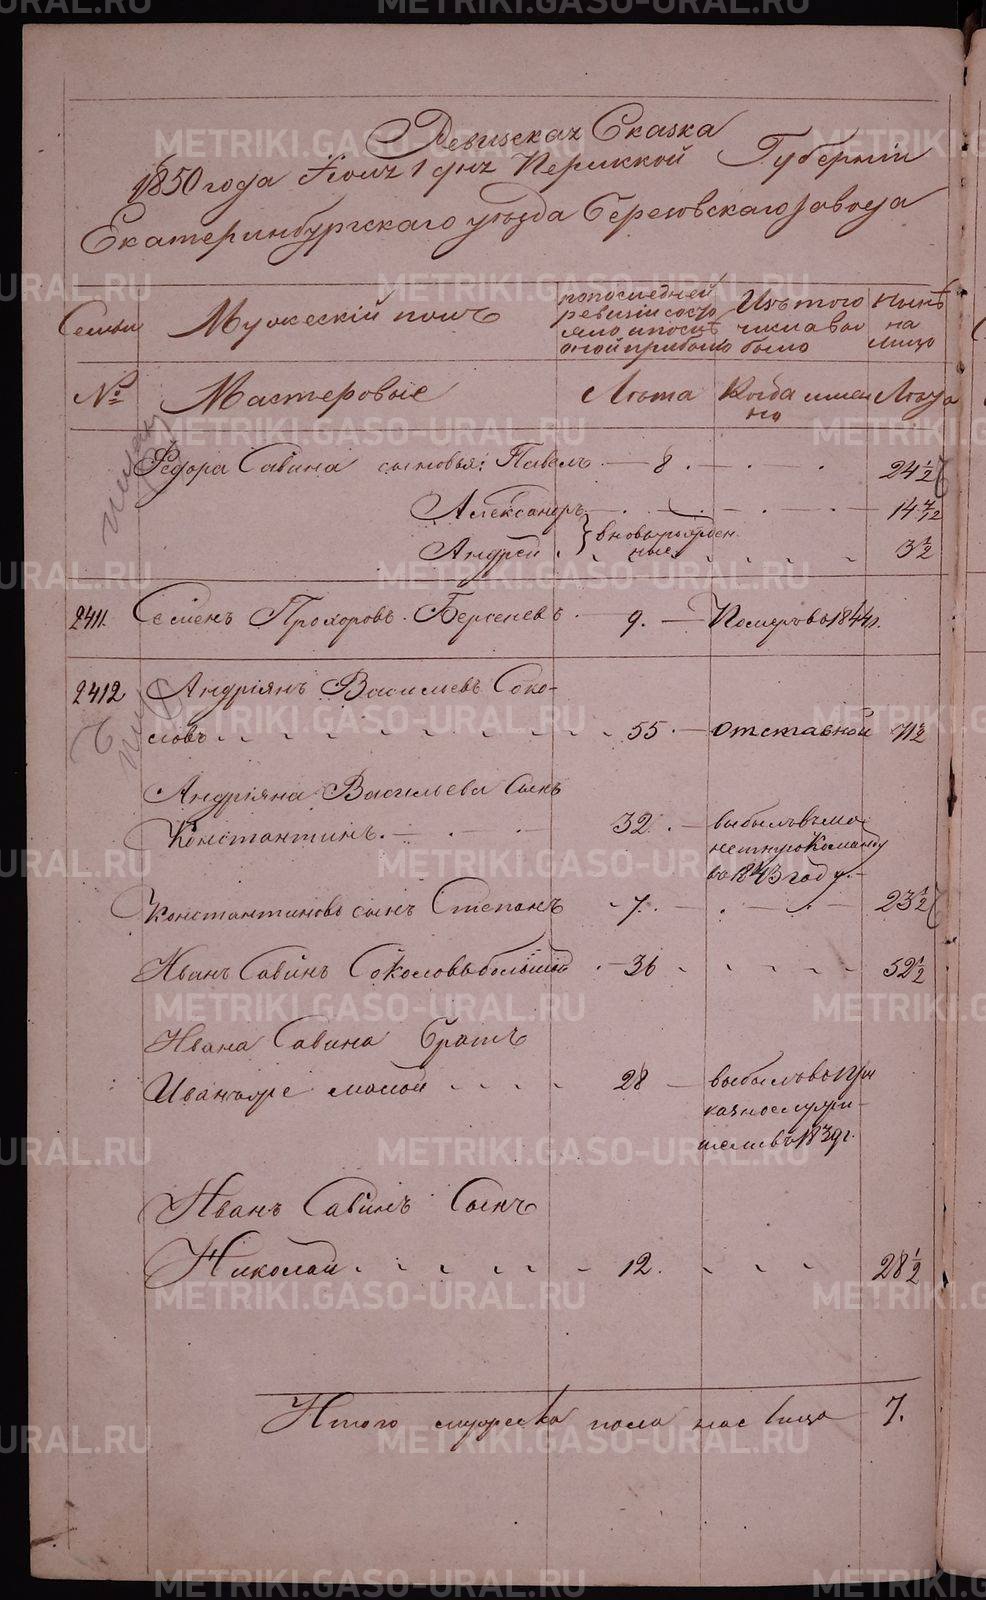 Ревизская Сказка
1850 года Іюля 1 дня Пермской Губерніи
Екатеринбургскаго уѣзда Березовскаго завода
Семьи
Мужескій полъ
по последней ревизіи состояло и после оной прибыло
Изъ того числа выбыло
Нынѣ на лицо
№
Мастеровые
Лѣта
Когда именно
Лѣта
Федора Савина сыновья: Павелъ 8. 24 1/2
Александръ 14 7/12
Андрей } вновь рожденные 3 1/2
2411. Семенъ Прохоровъ Берсеневъ 9. Померъ въ 1844 г.
2412 Андріянъ Васильевъ Соко-
ловъ 55. отставной 71 1/2
Андріяна Васильева сынъ
Константинъ. 32. выбылъ въ мо-
нетную команду
въ 1843 году.
Константиновъ сынъ Степанъ 7. 23 1/2
Иванъ Савинъ Соколовъ большой 36 52 1/2
Ивана Савина братъ
Иванъ же малой 28 выбылъ во при
казнослужи-
тели въ 1839 г.
Иванъ Савинъ сынъ
Николай 12. 28 1/2
Итого мужеска пола на лицо 7.
METRIKI.GASO-URAL.RU